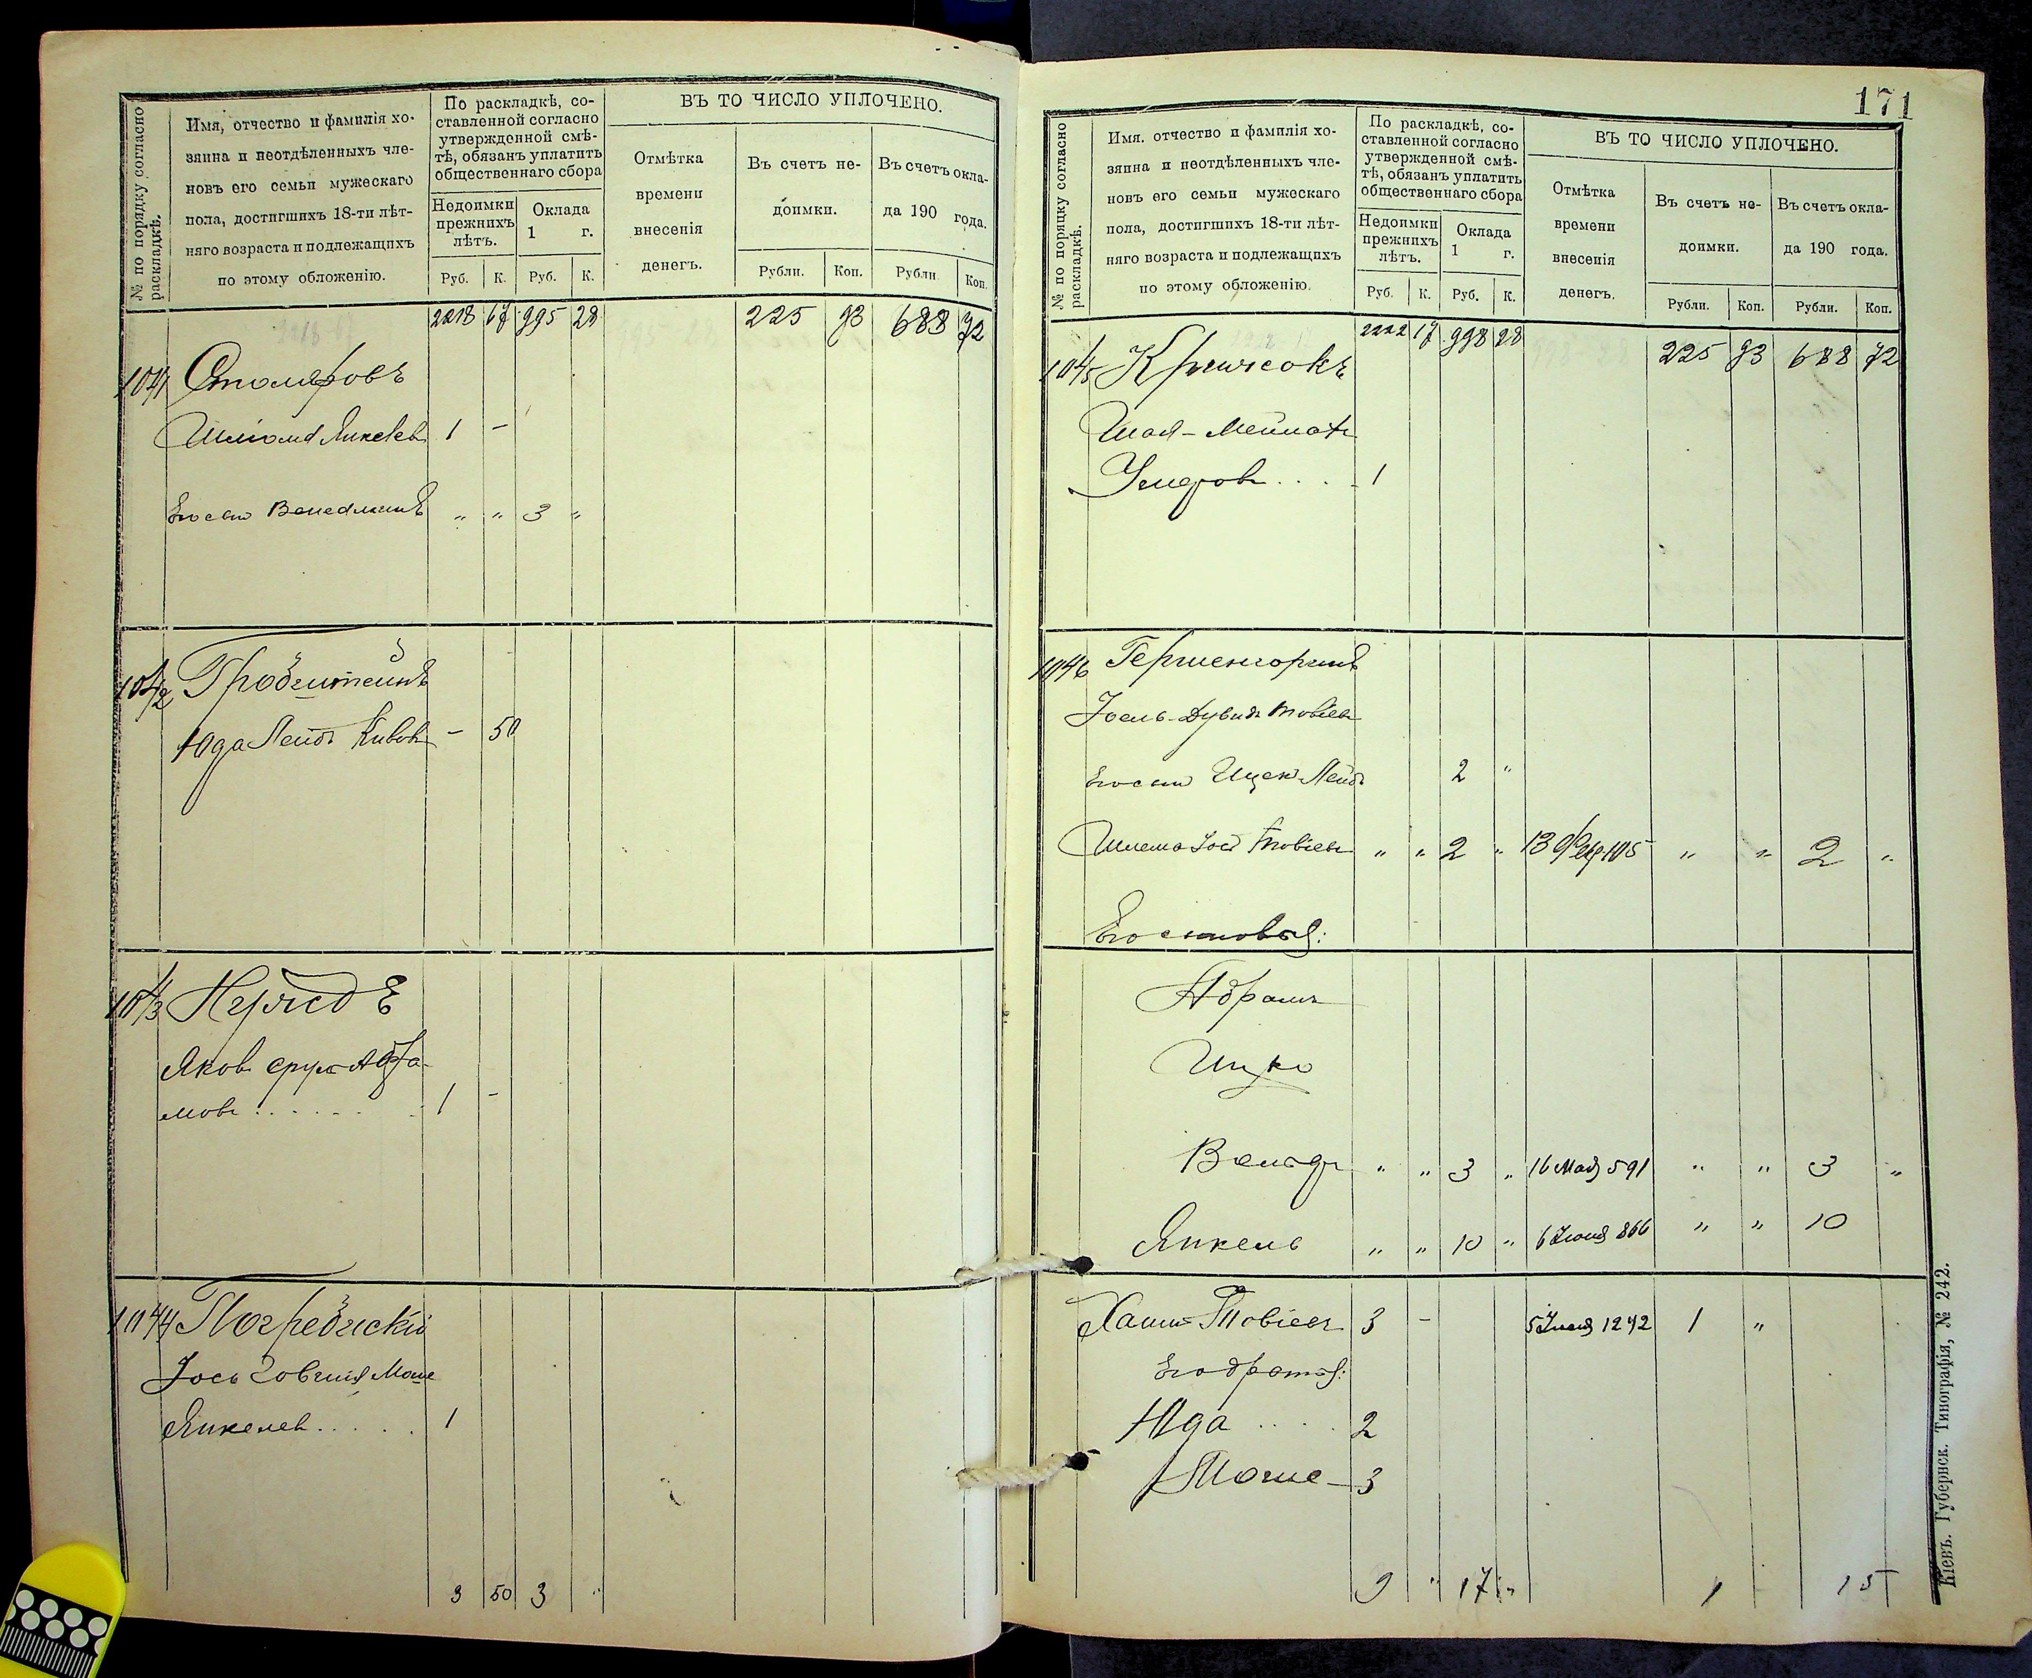 № по порядку согласно раскладкѣ.
Имя, отчество и фамилія хо-
зяина и неотдѣленныхъ чле-
новъ его семьи мужескаго
пола, достигшихъ 18-ти лѣт-
няго возраста и подлежащихъ
по этому обложенію.
По раскладкѣ, со-
ставленной согласно
утвержденной смѣ-
тѣ, обязанъ уплатить
общественнаго сбора
Недоимки
прежнихъ
лѣтъ.
Оклада
1 г.
Руб. К. Руб. К.
ВЪ ТО ЧИСЛО УПЛОЧЕНО.
Отмѣтка
времени
внесенія
денегъ.
Въ счетъ не-
доимки.
Въ счетъ окла-
да 190 года.
Рубли. Коп. Рубли Коп.
2218 67 995 28 225 93 688 72
1041 Столяровъ
Шліома Янкелев 1 –
Его сынъ „ „ 3 „
1042
Юда Лейб 50
1043
Яков Абра-
мов 1 –
1044 Погребискій
Іось Мошe
Янкелев 1
3 50 3 „
171
№ по порядку согласно раскладкѣ.
Имя. отчество и фамилія хо-
зяина и неотдѣленныхъ чле-
новъ его семьи мужескаго
пола, достигшихъ 18-ти лѣт-
няго возраста и подлежащихъ
по этому обложенію.
По раскладкѣ, со-
ставленной согласно
утвержденной смѣ-
тѣ, обязанъ уплатить
общественнаго сбора
Недоимки
прежнихъ
лѣтъ.
Оклада
1 г.
Руб. К. Руб. К.
ВЪ ТО ЧИСЛО УПЛОЧЕНО.
Отмѣтка
времени
внесенія
денегъ.
Въ счетъ не-
доимки.
Въ счетъ окла-
да 190 года.
Рубли. Коп. Рубли. Коп.
2222 17 998 28 225 93 688 72
1045
Шая-
1
1046 Гершенгоринъ
Іоель-Дувидъ Товіев
Его сын Ицек Лейб 2 „
Шлема Іось Товіев „ „ 2 „ 13 Февр 105 „ „ 2 „
Его сыновья:
Абрам
Ицко
Вольф „ „ 3 „ 16 Мая 591 „ „ 3 „
Янкель „ „ 10 „ 6 Іюня 866 „ „ 10
Хаим Товіев 3 – 1242 1 „
Его братья:
Юда 2
Моше – 3
9 „ 17 „ 1 15
Кіевъ. Губернск. Типографія, № 242.